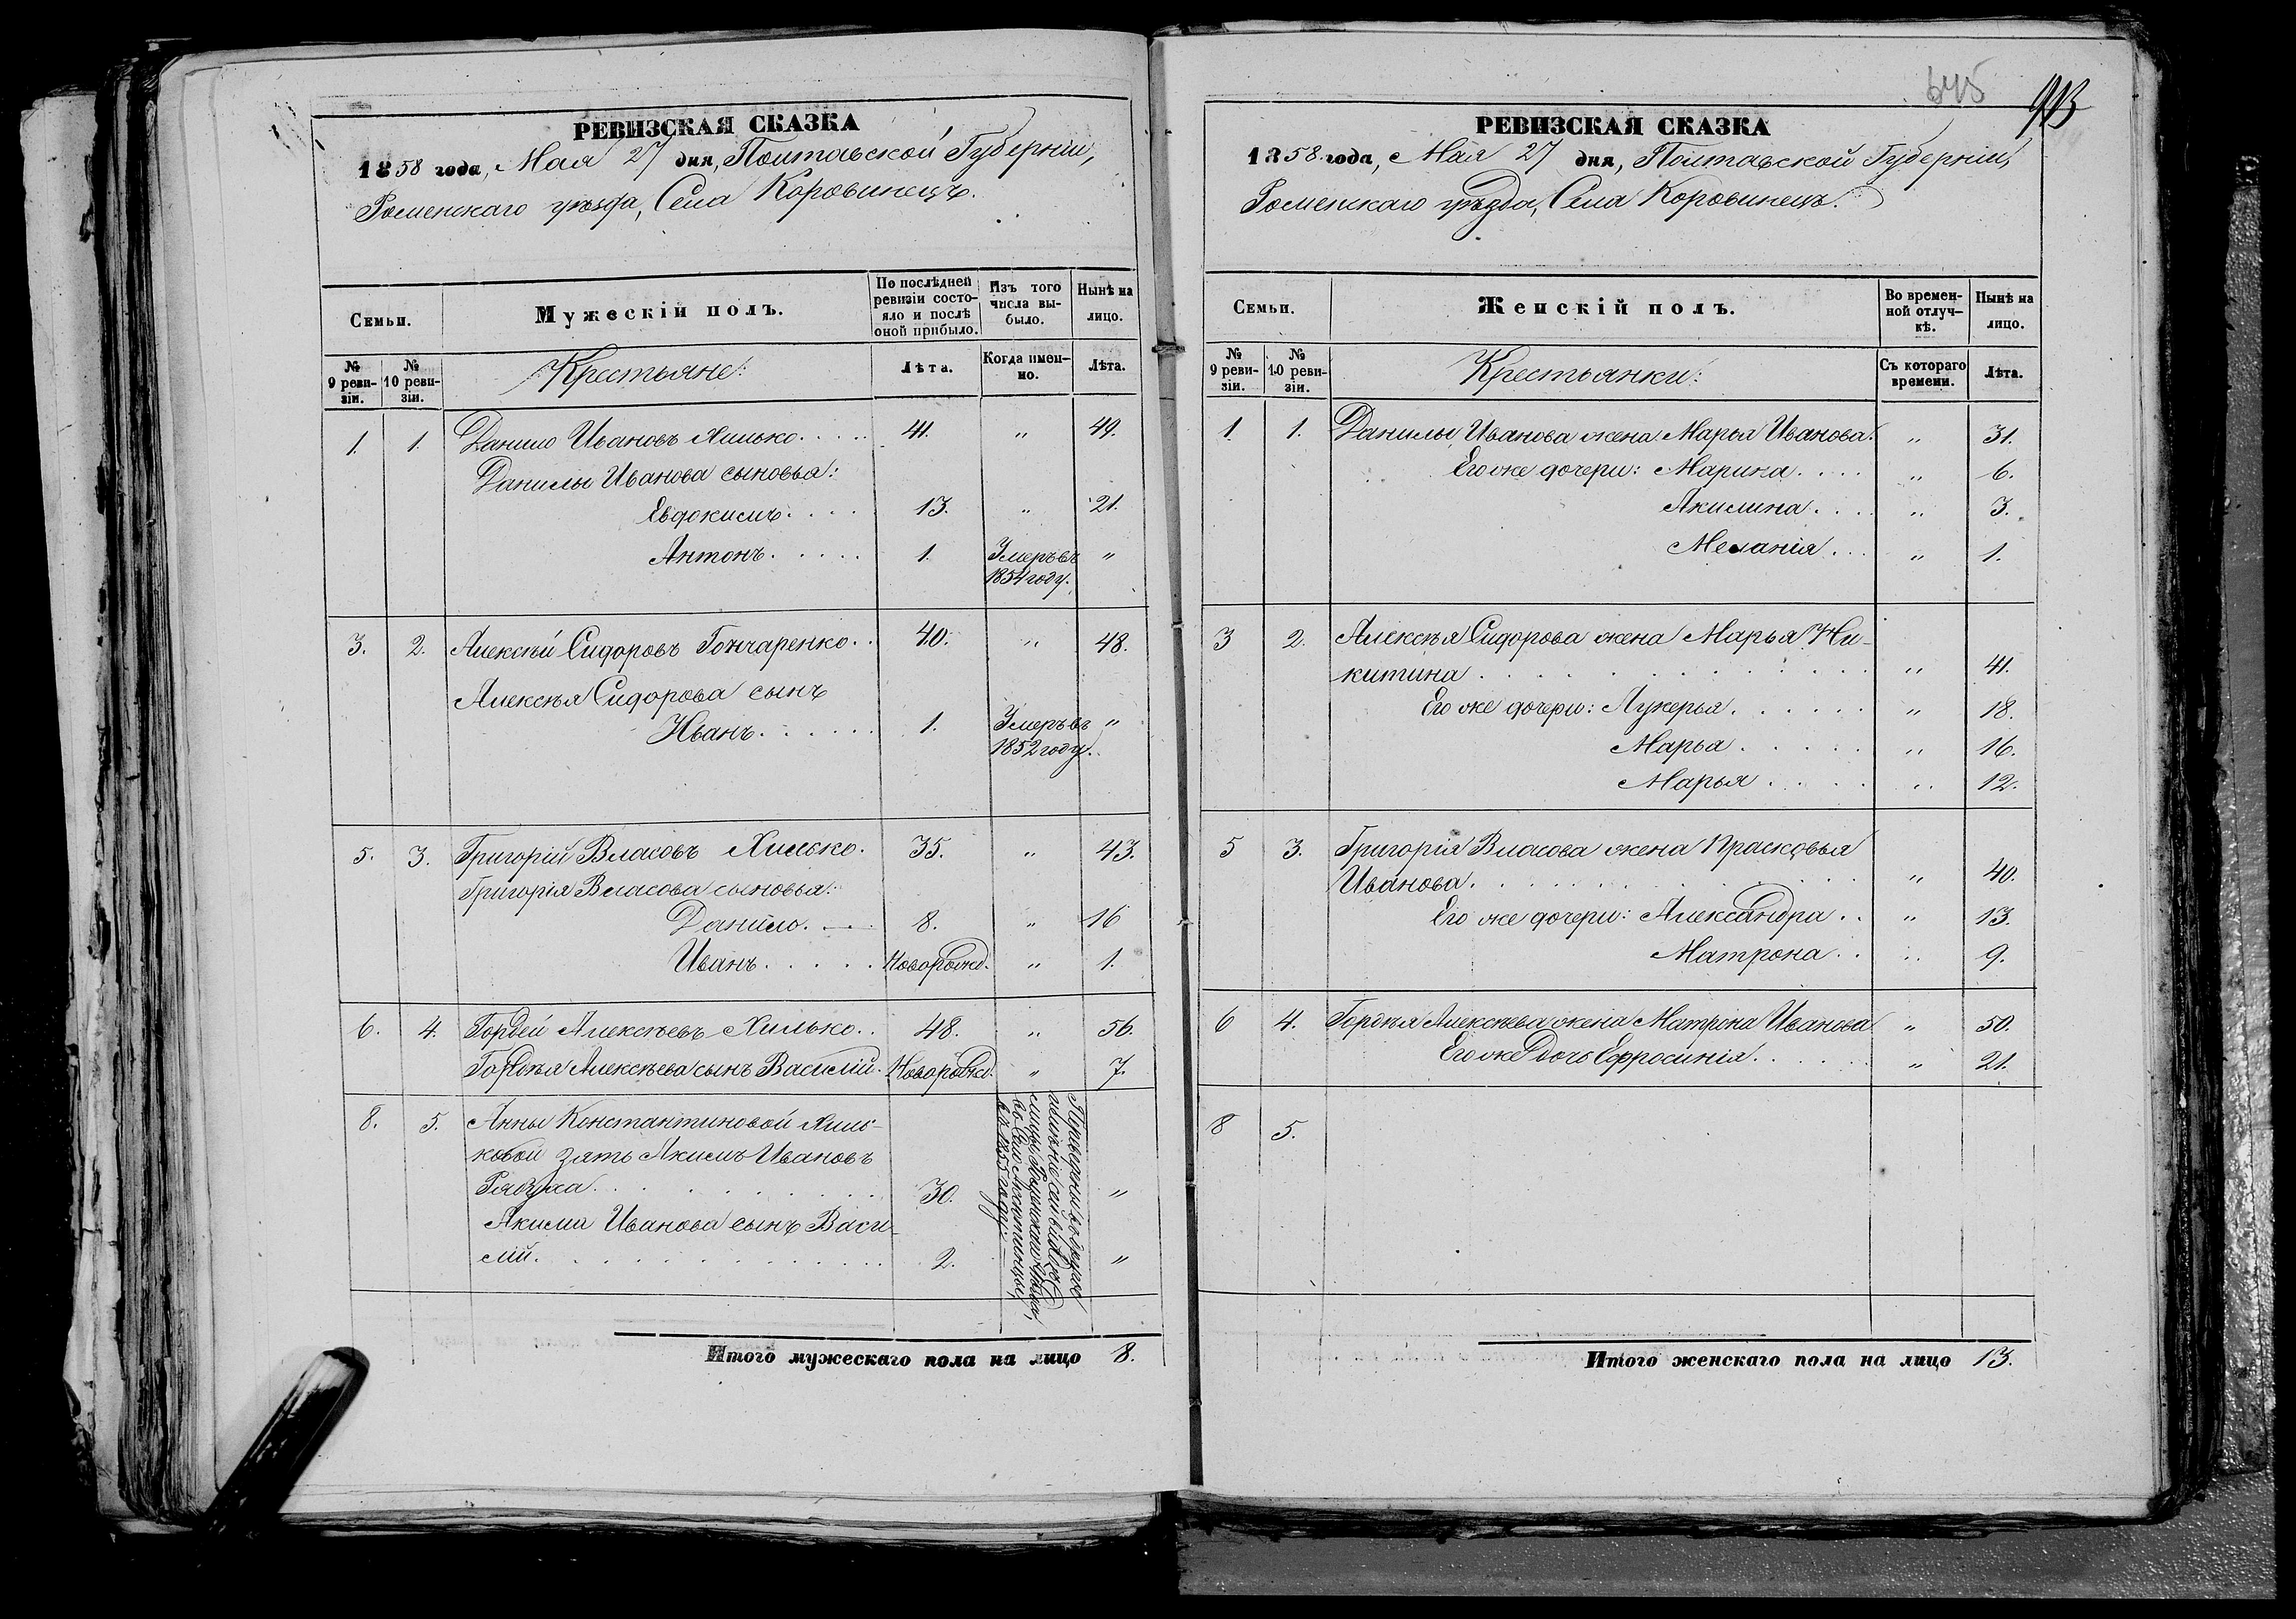 РЕВИЗСКАЯ СКАЗКА
1858 года, Мая 27 дня, Полтавской Губерніи,
Роменскаго уѣзда, Села Коровинецъ.
Семьи.
Мужескій полъ.
По послѣдней ревизіи состояло и послѣ оной прибыло.
Изъ того числа выбыло.
Нынѣ на лицо.
№ 9 ревизіи.
№ 10 ревизіи.
Крестьяне:
Лѣта.
Когда именно.
Лѣта.
1. 1. Данило Ивановъ Хилько..... 41. " 49.
Данилы Иванова сыновья:
Евдокимъ.... 13. " 21.
Антонъ..... 1. Умеръ въ "
1854 году.
3. 2. Алексѣй Сидоровъ Гончаренко.. 40. " 48.
Алексѣя Сидорова сынъ
Иванъ...... 1. Умеръ въ "
1852 году.
5. 3. Григорій Власовъ Хилько. 35. " 43.
Григорія Власова сыновья:
Данило. 8. " 16
Иванъ..... Новорожд. " 1.
6. 4. Гордей Алексѣевъ Хилько.. 48. " 56.
Гордѣя Алексѣева сынъ Василій. Новорожд. " 7.
8. 5. Анны Константиновой Хиль-
ковой зять Якимъ Ивановъ
30. "
Якима Иванова сынъ Васи-
лій. 2. "
въ 1855 году.
Итого мужескаго пола на лицо 8.
645
913
РЕВИЗСКАЯ СКАЗКА
1858 года, Мая 27 дня, Полтавской Губерніи,
Роменскаго уѣзда, Села Коровинецъ.
Семьи.
Женскій полъ.
Во временной отлучкѣ.
Нынѣ на лицо.
№ 9 ревизіи.
№ 10 ревизіи.
Крестьянки:
Съ котораго времени.
Лѣта.
1. 1. Данилы Иванова жена Марья Иванова. " 31.
Его же дочери: Марина.... " 6.
Якилина.... " 3.
Меланія... " 1.
3 2. Алексѣя Сидорова жена Марья Ни-
китина " 41.
Его же дочери: Лукерья...... " 18.
Марья..... " 16.
Марья.... " 12.
5 3. Григорія Власова жена Прасковья
Иванова. " 40.
Его же дочери: Александра.. " 13.
Матрона.. " 9.
6 4. Гордѣя Алексѣева жена Матрона Иванова " 50.
Его же дочь Ефросинія..... " 21.
8 5.
Итого женскаго пола на лицо 13.